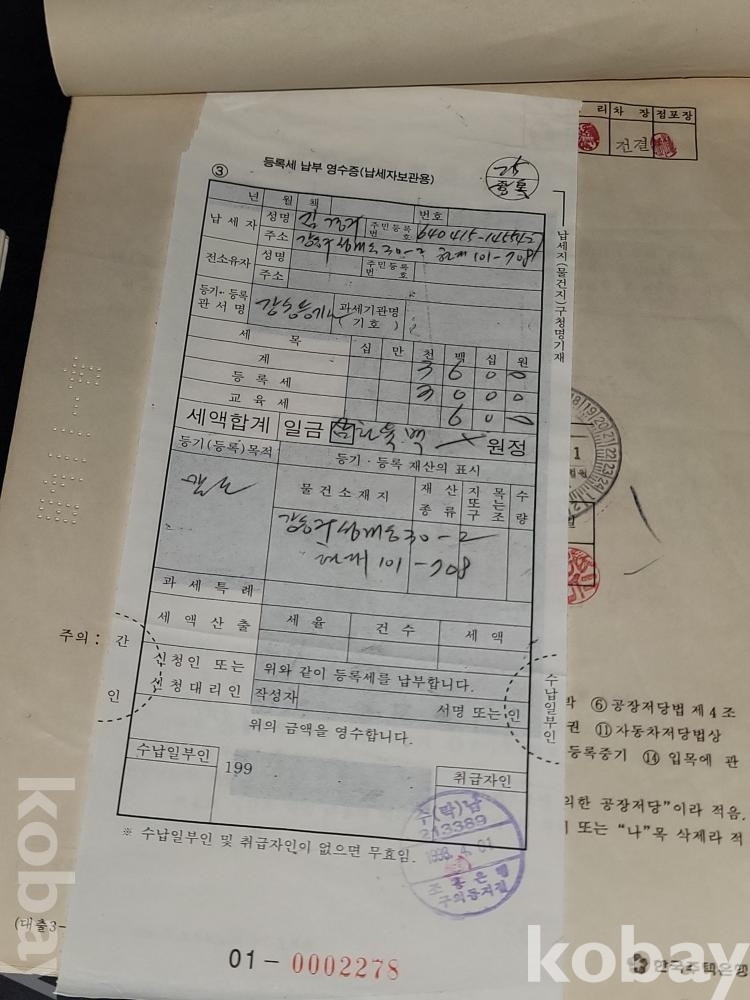 리 차 장 점포장
전결
③ 등록세 납부 영수증(납세자보관용)
년 월 책 번호
납 세 자 성명 주민등록번호 640415-
주소 30-2 101-708
전소유자 성명 주민등록번호
주소
등기·등록관서명 과세기관명(기호)
세 목 십 만 천 백 십 원
계 3 6 0 0
등 록 세 3 0 0 0
교 육 세 6 0 0
세액합계 일금 원정
등기(등록)목적 등기·등록 재산의 표시
물건소재지 재산종류 지목또는구조 수량
30-2
101-708
과 세 특 례
세 액 산 출 세 율 건 수 세 액
신청인 또는 위와 같이 등록세를 납부합니다.
신청대리인 작성자 서명 또는 인
위의 금액을 영수합니다.
수납일부인 199 취급자인
수(탁)납
213389
1998. 4. 01
조흥은행
※ 수납일부인 및 취급자인이 없으면 무효임.
01-0002278
납세지(물건지)구청명기재
수납일부인
주의 : 간
인
⑥ 공장저당법 제4조
권 ⑪ 자동차저당법상
등록중기 ⑭ 입목에 관
의한 공장저당”이라 적음.
또는 “나”목 삭제라 적
(대출3-
한국주택은행
kobay
kobay
kobay